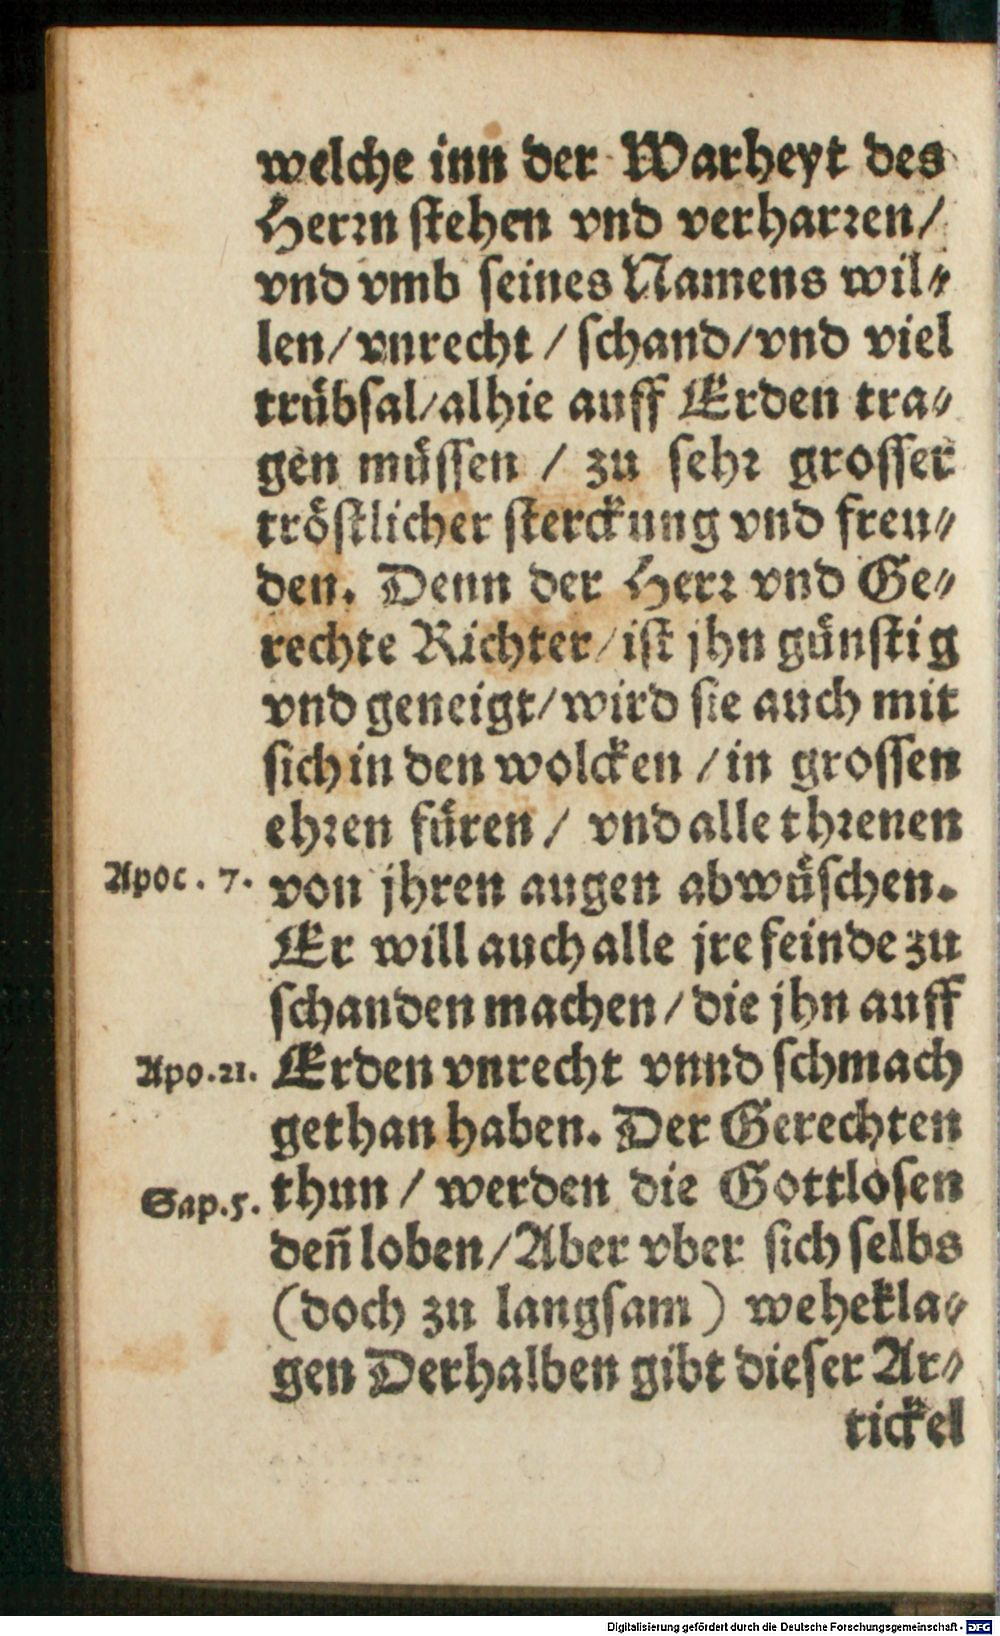 welche inn der Warheyt des
Herrn stehen vnd verharren/
vnd vmb seines Namens wil-
len/ vnrecht / schand/ vnd viel
trübsal/ alhie auff Erden tra-
gen müssen / zu sehr grosser
tröstlicher sterckung vnd freu-
den. Denn der Herr vnd Ge-
rechte Richter/ ist jhn günstig
vnd geneigt/ wird sie auch mit
sich in den wolcken / in grossen
ehren füren / vnd alle threnen
Apoc. 7. von jhren augen abwäschen.
Er will auch alle jre feinde zu
schanden machen/ die jhn auff
Apo. 21. Erden vnrecht vnnd schmach
gethan haben. Der Gerechten
Sap. 5. thun / werden die Gottlosen
deñ loben/ Aber vber sich selbs
(doch zu langsam) wehekla-
gen Derhalben gibt dieser Ar-
tickel
Digitalisierung gefördert durch die Deutsche Forschungsgemeinschaft - DFG